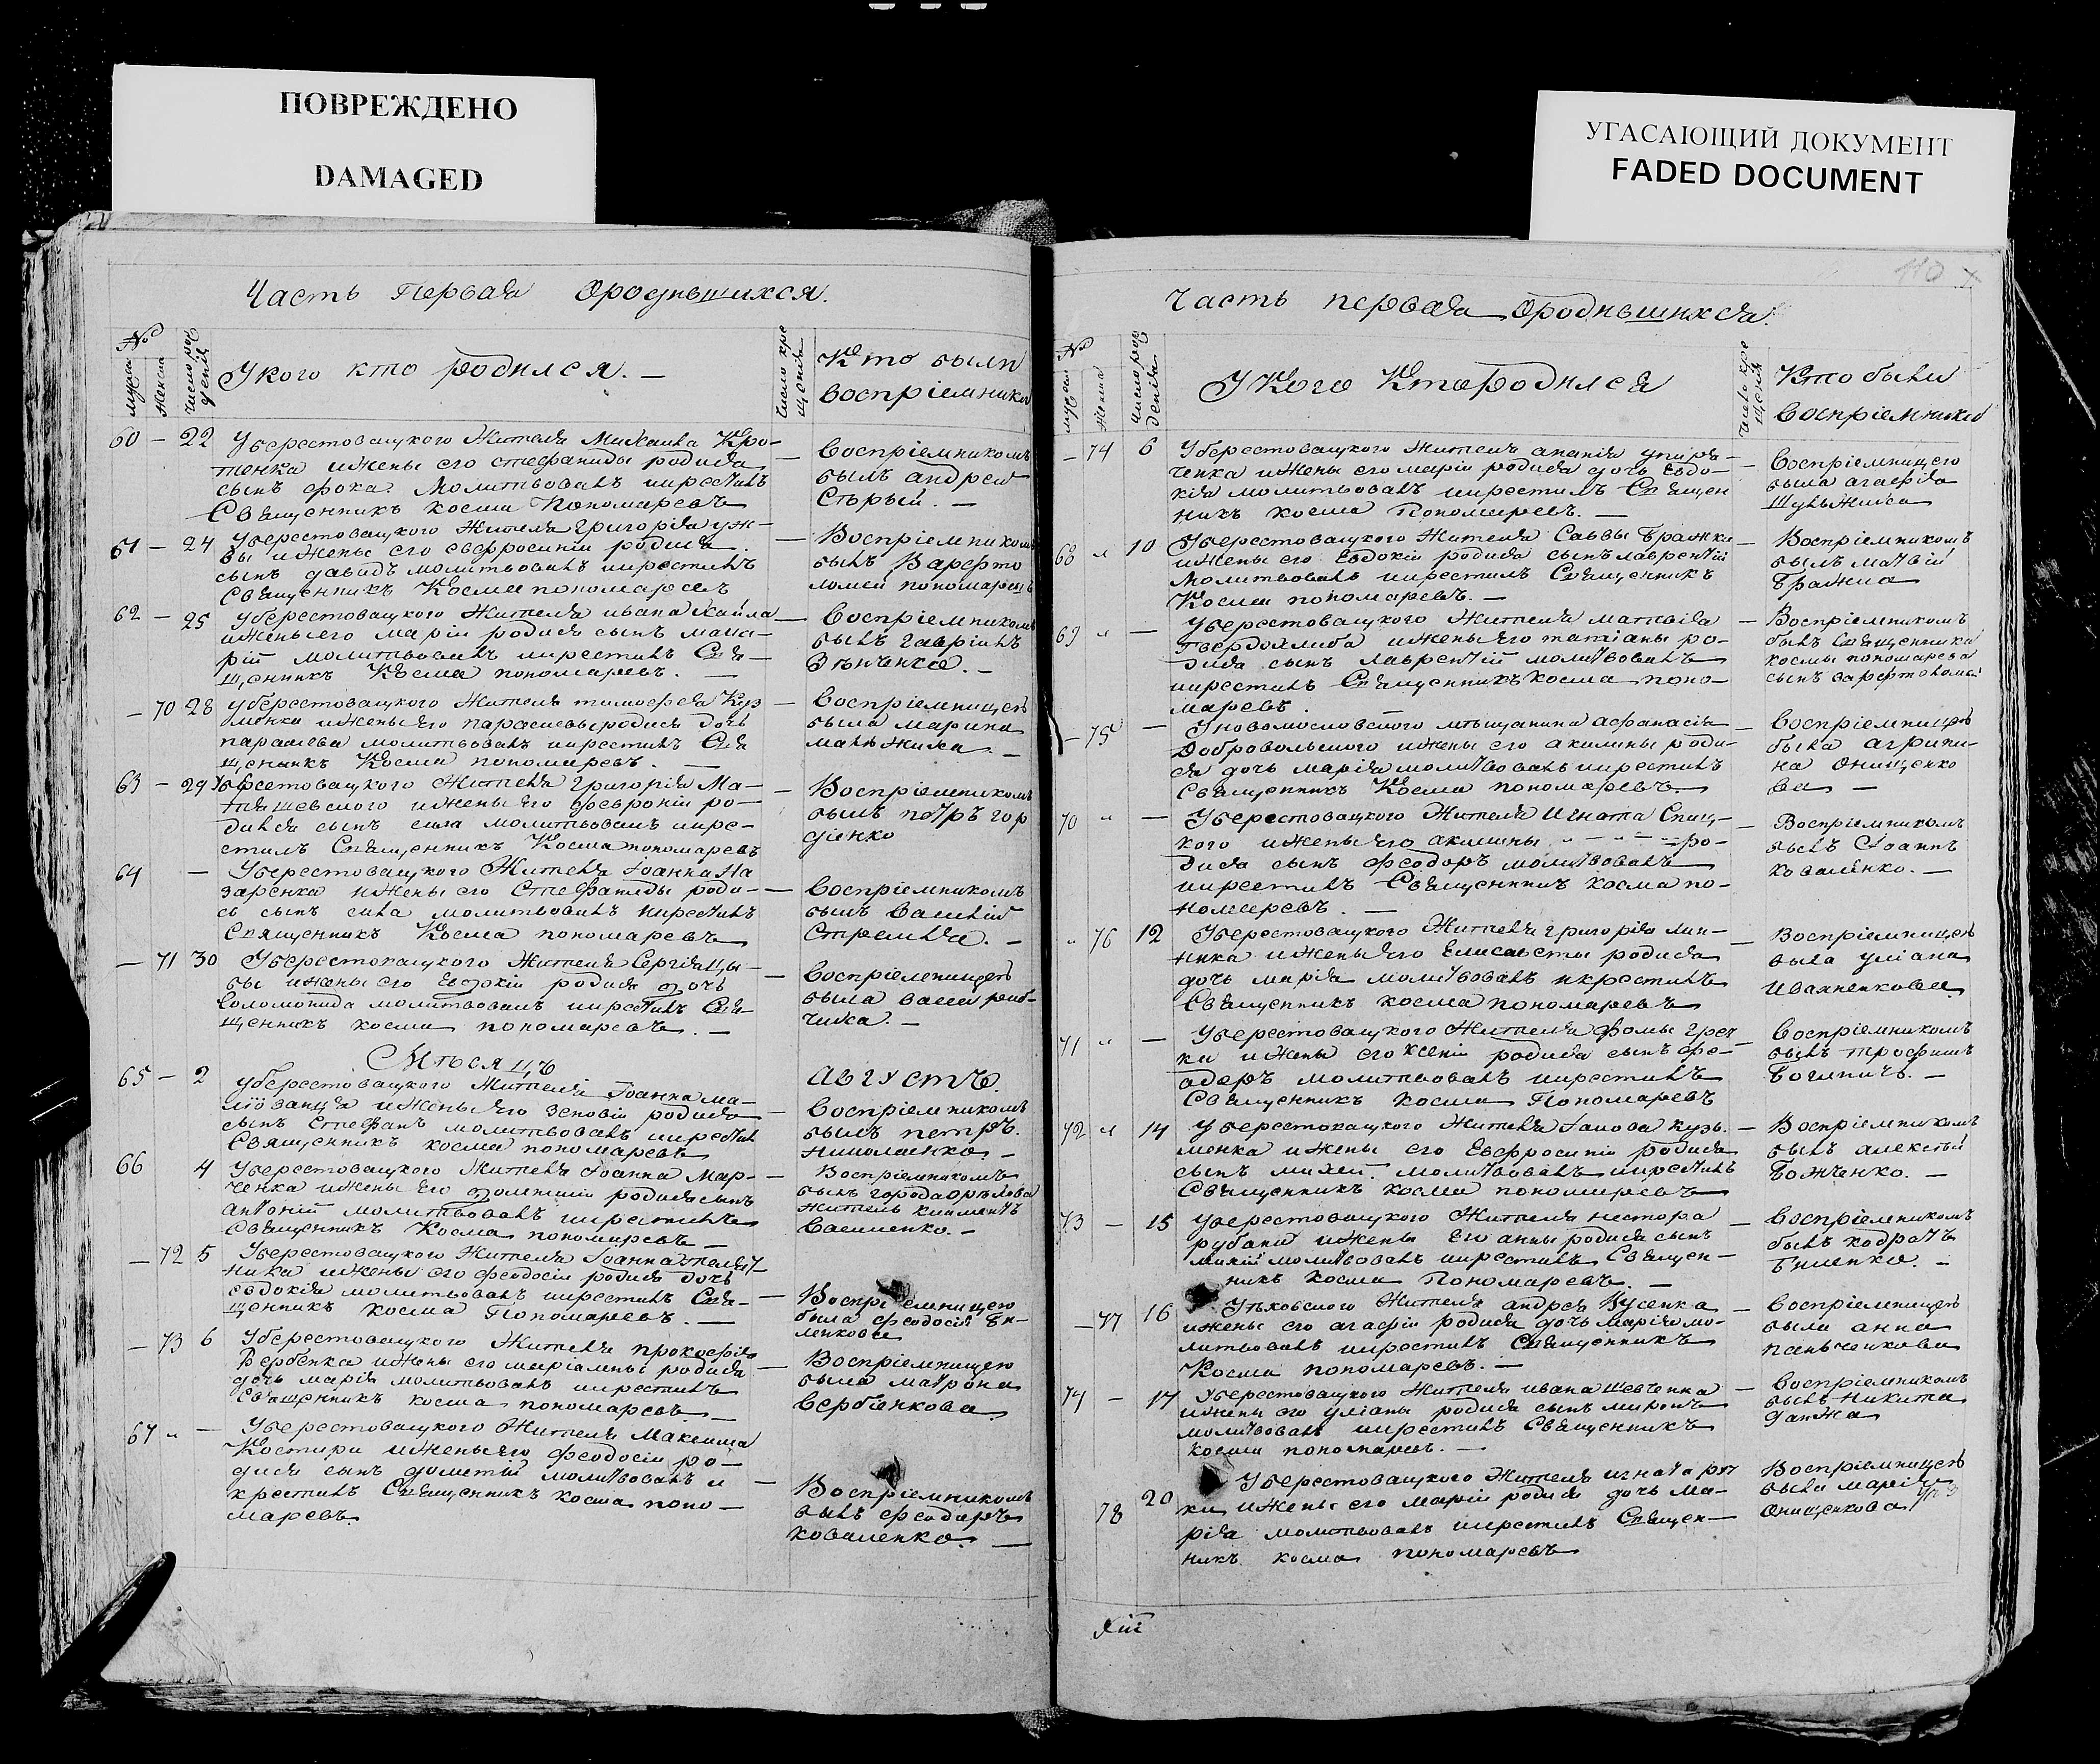 ПОВРЕЖДЕНО
DAMAGED
УГАСАЮЩИЙ ДОКУМЕНТ
FADED DOCUMENT
110
Часть Первая Ородившихся.
№
мужска
женска
число рож
дения
Укого кто родился. —
число кре
щения
Кто были
воспріемники
60 — 22 Уберестовацкого Жителя Михаила Кро-
тенка ижены его стефаниды родися
сынъ фока. Молитвовалъ икрестилъ
Священникъ косма Пономаревъ
Воспріемникомъ
былъ андрей
Старый. —
61 — 24 Уберестовацкого Жителя Григорія уж-
вы ижены его евфросиніи родися
сынъ давидъ молитвовалъ икрестилъ
Священникъ Косма пономаревъ
Воспріемникомъ
былъ Варфто
ломей пономаревъ
62 — 25 Уберестовацкого Жителя ивана Хайла
ижены его маріи родися сынъ мака-
рій молитвовалъ икрестилъ Свя-
щенникъ Косма пономаревъ. —
Воспріемникомъ
былъ гавріилъ
Зѣнченко. —
— 70 28 Уберестовацкого Жителя тимофея Куз
менка ижены его парасевы родися дочь
парасева молитвовалъ икрестилъ Свя
щенникъ Косма пономаревъ. —
Воспріемницею
была марина
63 — 29 Уберестовацкого Жителя григорія Ма-
тяшевского ижены его февроніи ро-
дился сынъ сила молитвовалъ икре-
стилъ Священникъ Косма пономаревъ
Воспріемникомъ
былъ петръ гор
діенко
64 — Уберестовацкого Жителя Іоанна На
заренка ижены его Стефаниды роди-
сь сынъ сила молитвовалъ икрестилъ
Священникъ Косма пономаревъ
Воспріемникомъ
былъ Василій
— 71 30 Уберестовацкого Жителя Сергія Цы-
бы ижены его Евдокіи родися дочь
Соломонида молитвовалъ икрестилъ Свя-
щенникъ косма пономаревъ. —
Воспріемницею
была
Мѣсяцъ Августъ.
65 — 2 Уберестовацкого Жителя Іоанна ма-
ижены его зеновіи родися
сынъ Стефанъ молитвовалъ икрестилъ
Священникъ косма пономаревъ
Воспріемникомъ
былъ петръ
николаенко —
66 4 Уберестовацкого Жителя Іоанна Мар-
ченка ижены его родися сынъ
антоній молитвовалъ икрестилъ
Священникъ Косма пономаревъ —
Воспріемникомъ
былъ города орѣхова
житель климентъ
Василенко. —
— 72 5 Уберестовацкого Жителя Іоанна
ника ижены его феодосіи родися дочь
евдокія молитвовалъ икрестилъ Свя-
щенникъ косма Пономаревъ. —
Воспріемницею
была феодосія
ленкова
— 73 6 Уберестовацкого Жителя прокофія
Вербенка ижены его маріамны родися
дочь марія молитвовалъ икрестилъ
Священникъ косма пономаревъ —
Воспріемницею
была матрона
вербѣнкова
67 „ — Уберестовацкого Жителя Максима
Костири ижены его феодосіи ро-
дися сынъ дометій молитвовалъ и
крестилъ Священникъ косма поно-
маревъ.
Воспріемникомъ
былъ феодоръ
коваленко. —
Часть первая Ородившихся.
№
мужска
женска
число рож
денія
Укого Кто родился
число кре
щения
Кто были
Воспріемники
— 74 6 Уберестовацкого Жителя ананія
ченка ижены его маріи родися дочь Евдо-
кія молитвовалъ икрестилъ Священ
никъ косма Пономаревъ. —
Воспріемницею
была агафія
68 „ 10 Уберестовацкого Жителя Саввы Бражки
ижены его Евдокіи родися сынъ лаврентій
молитвовалъ икрестилъ Священникъ
Косма пономаревъ. —
Воспріемникомъ
былъ матвій
Бражка
69 „ — Уберестовацкого Жителя матвѣя
твердохлиба ижены его татіаны ро-
дися сынъ лаврентій молитвовалъ
икрестилъ Священникъ косма поно-
маревъ.
Воспріемникомъ
былъ священника
космы пономарева
сынъ варфтоломей
— 75 — Уновомосковского мѣщанина афанасія
Добровольского ижены его акилины роди-
ся дочь марія молитвовалъ икрестилъ
Священникъ Косма пономаревъ
Воспріемницею
была агрипи-
на Онищенко
ва —
70 „ — Уберестовацкого Жителя Игната Спиц-
кого ижены его акилины ро-
дися сынъ феодоръ молитвовалъ
икрестилъ Священникъ косма по-
номаревъ. —
Воспріемникомъ
былъ Іоаннъ
коваленко. —
„ 76 12 Уберестовацкого Жителя григорія лин-
ника ижены его Елисаветы родися
дочь марія молитвовалъ икрестилъ
Священникъ косма пономаревъ
Воспріемницею
была уліана
Иваненкова
71 „ — Уберестовацкого Жителя фомы греч
ки ижены его ксеніи родися сынъ фе-
одоръ молитвовалъ икрестилъ
Священникъ косма Пономаревъ
Воспріемникомъ
былъ трофимъ
72 „ 14 Уберестовацкого Жителя Іакова кузь-
менка ижены его Евфросиніи родися
сынъ михей молитвовалъ икрестилъ
Священникъ косма пономаревъ
Воспріемникомъ
былъ алексѣй
Боженко. —
73 — 15 Уберестовацкого Жителя нестора
рубана ижены его анны родися сынъ
молитвовалъ икрестилъ Священ-
никъ косма Пономаревъ. —
Воспріемникомъ
былъ кодратъ
— 77 16 Жителя андрея Кусенка
ижены его агафіи родися дочь марія мо-
литвовалъ икрестилъ Священникъ
Косма пономаревъ. —
Воспріемницею
была анна
панченкова
74 — 17 Уберестовацкого Жителя ивана шевченка
ижены его уліаны родися сынъ миронъ
молитвовалъ икрестилъ Священникъ
косма пономаревъ. —
Воспріемникомъ
былъ никита
ганжа
78 20 Уберестовацкого Жителя игната рѣт
ки ижены его маріи родися дочь ма-
рія молитвовалъ икрестилъ Священ-
никъ косма пономаревъ
Воспріемницею
была марія
Онищенкова